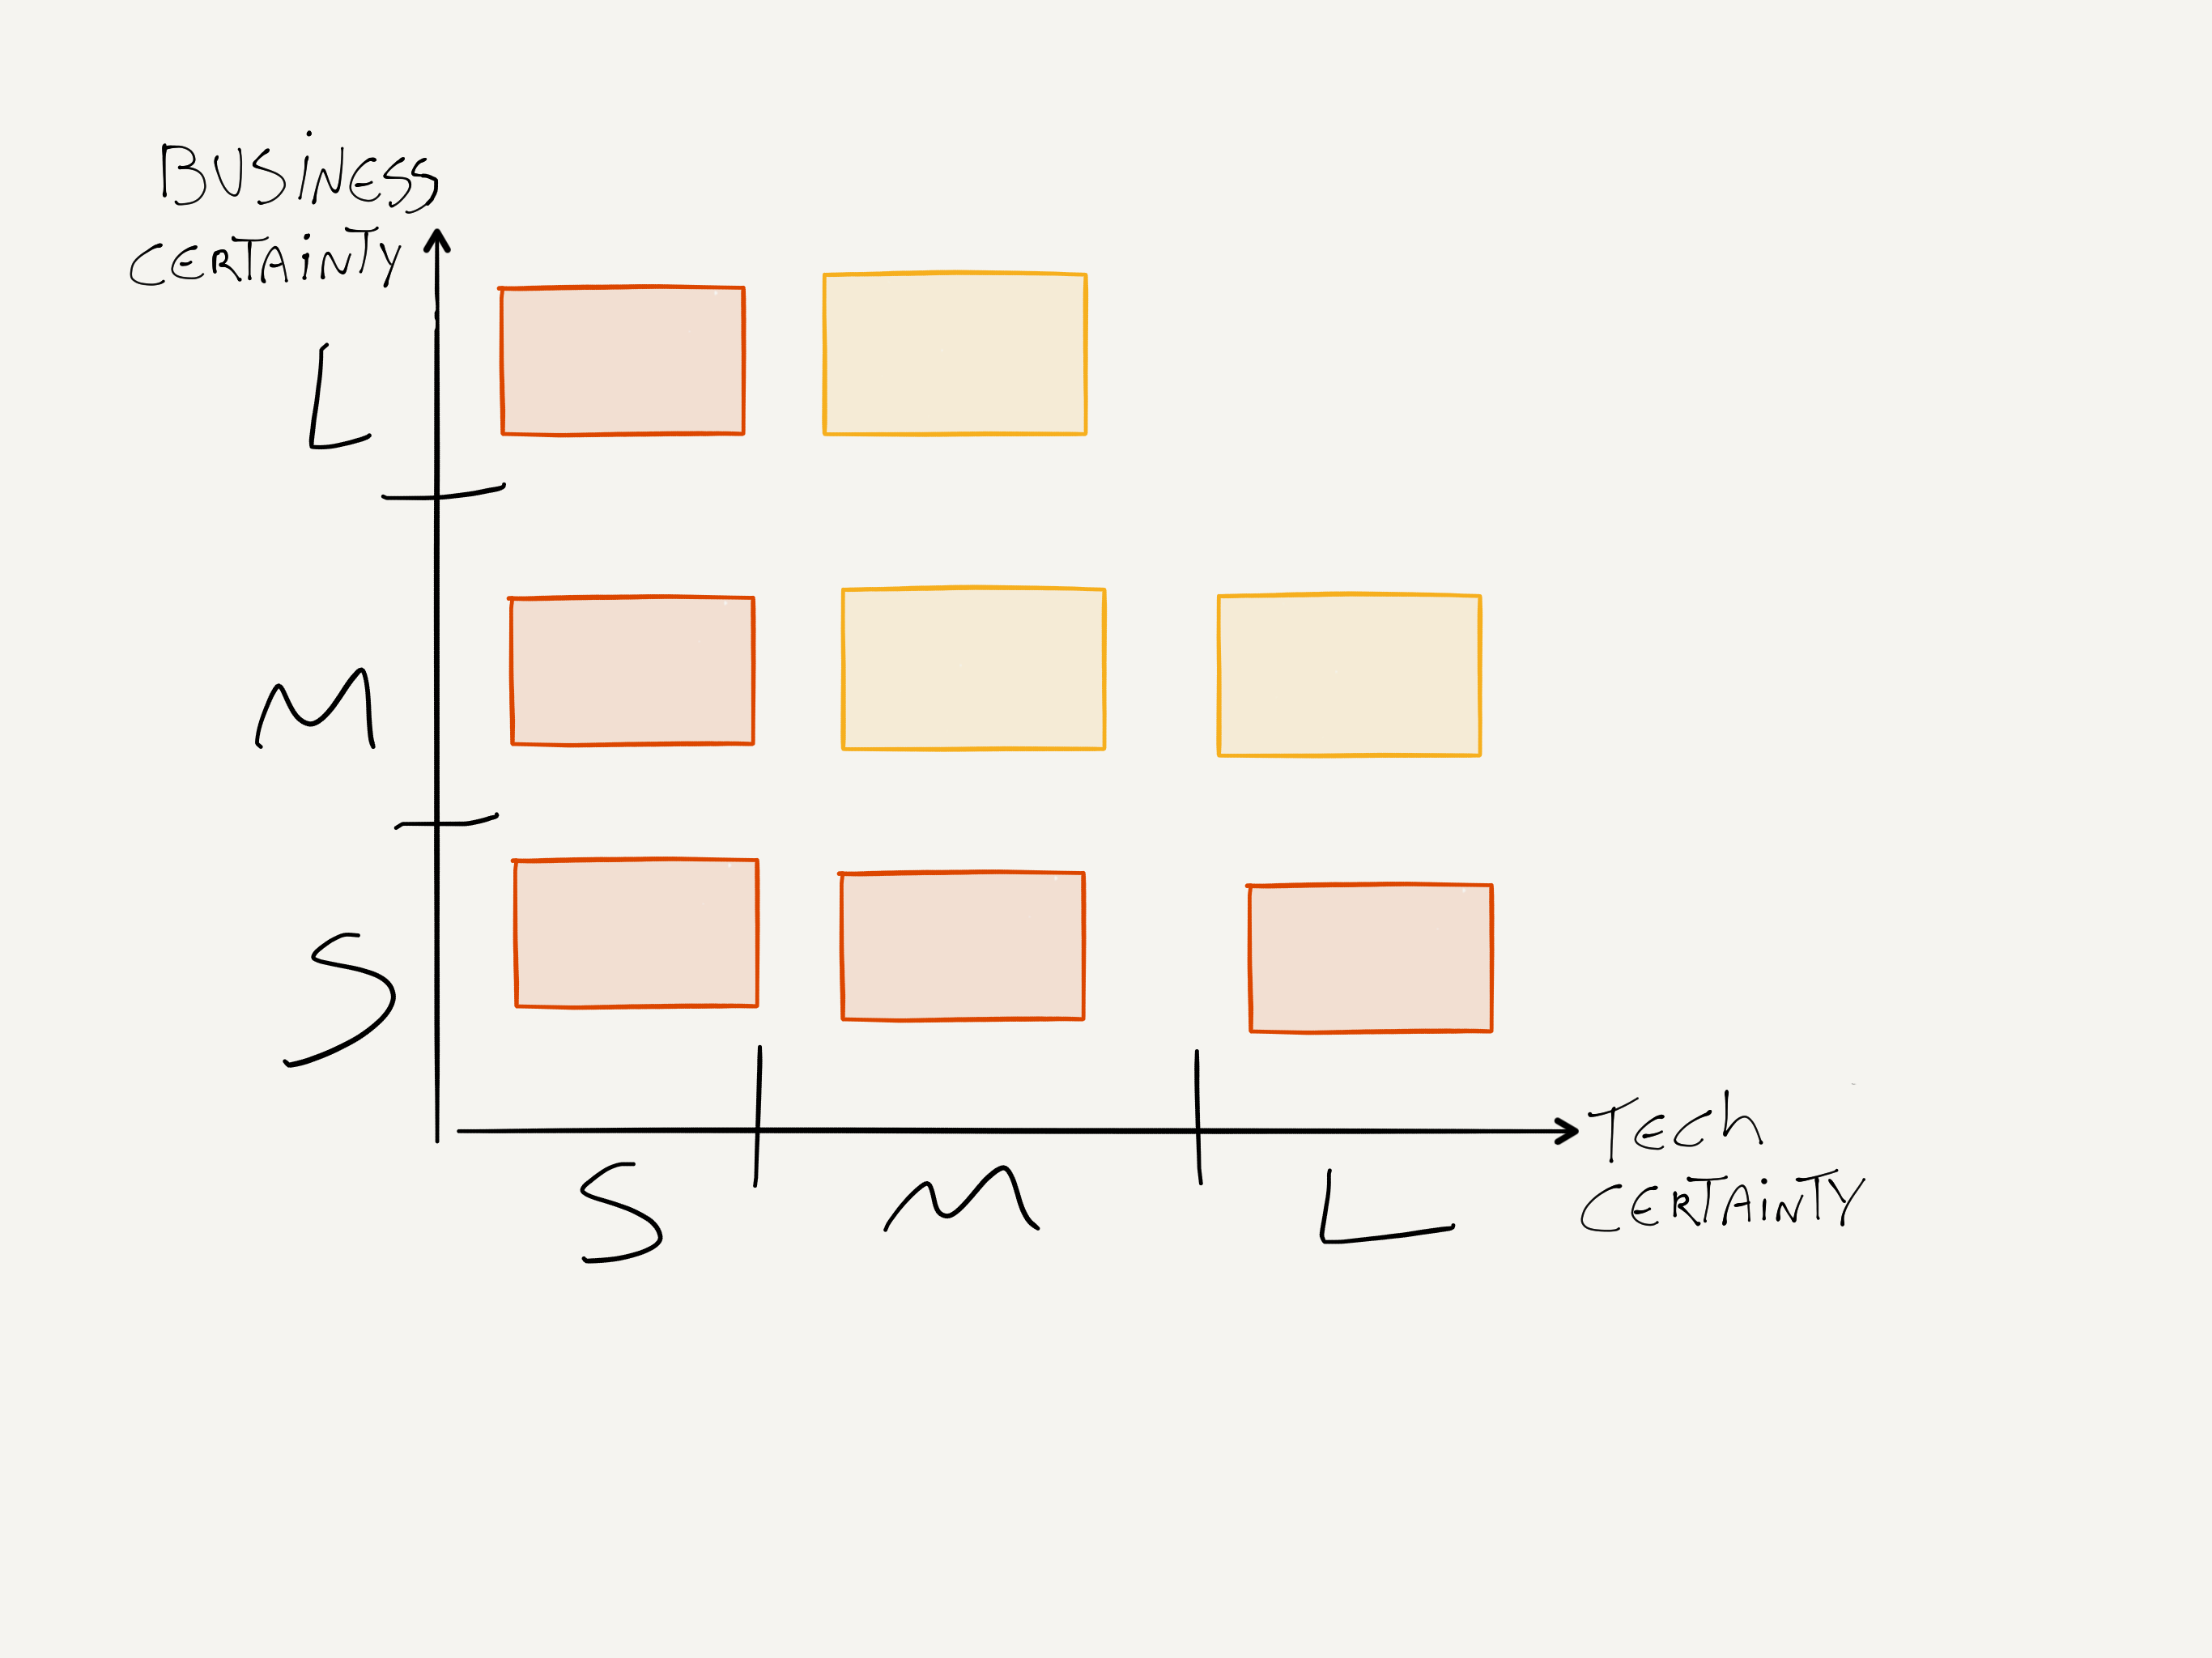 BUSiNESS
CERTAiNTY
L
M
S
S
M
L
TECh
CERTAiNTY